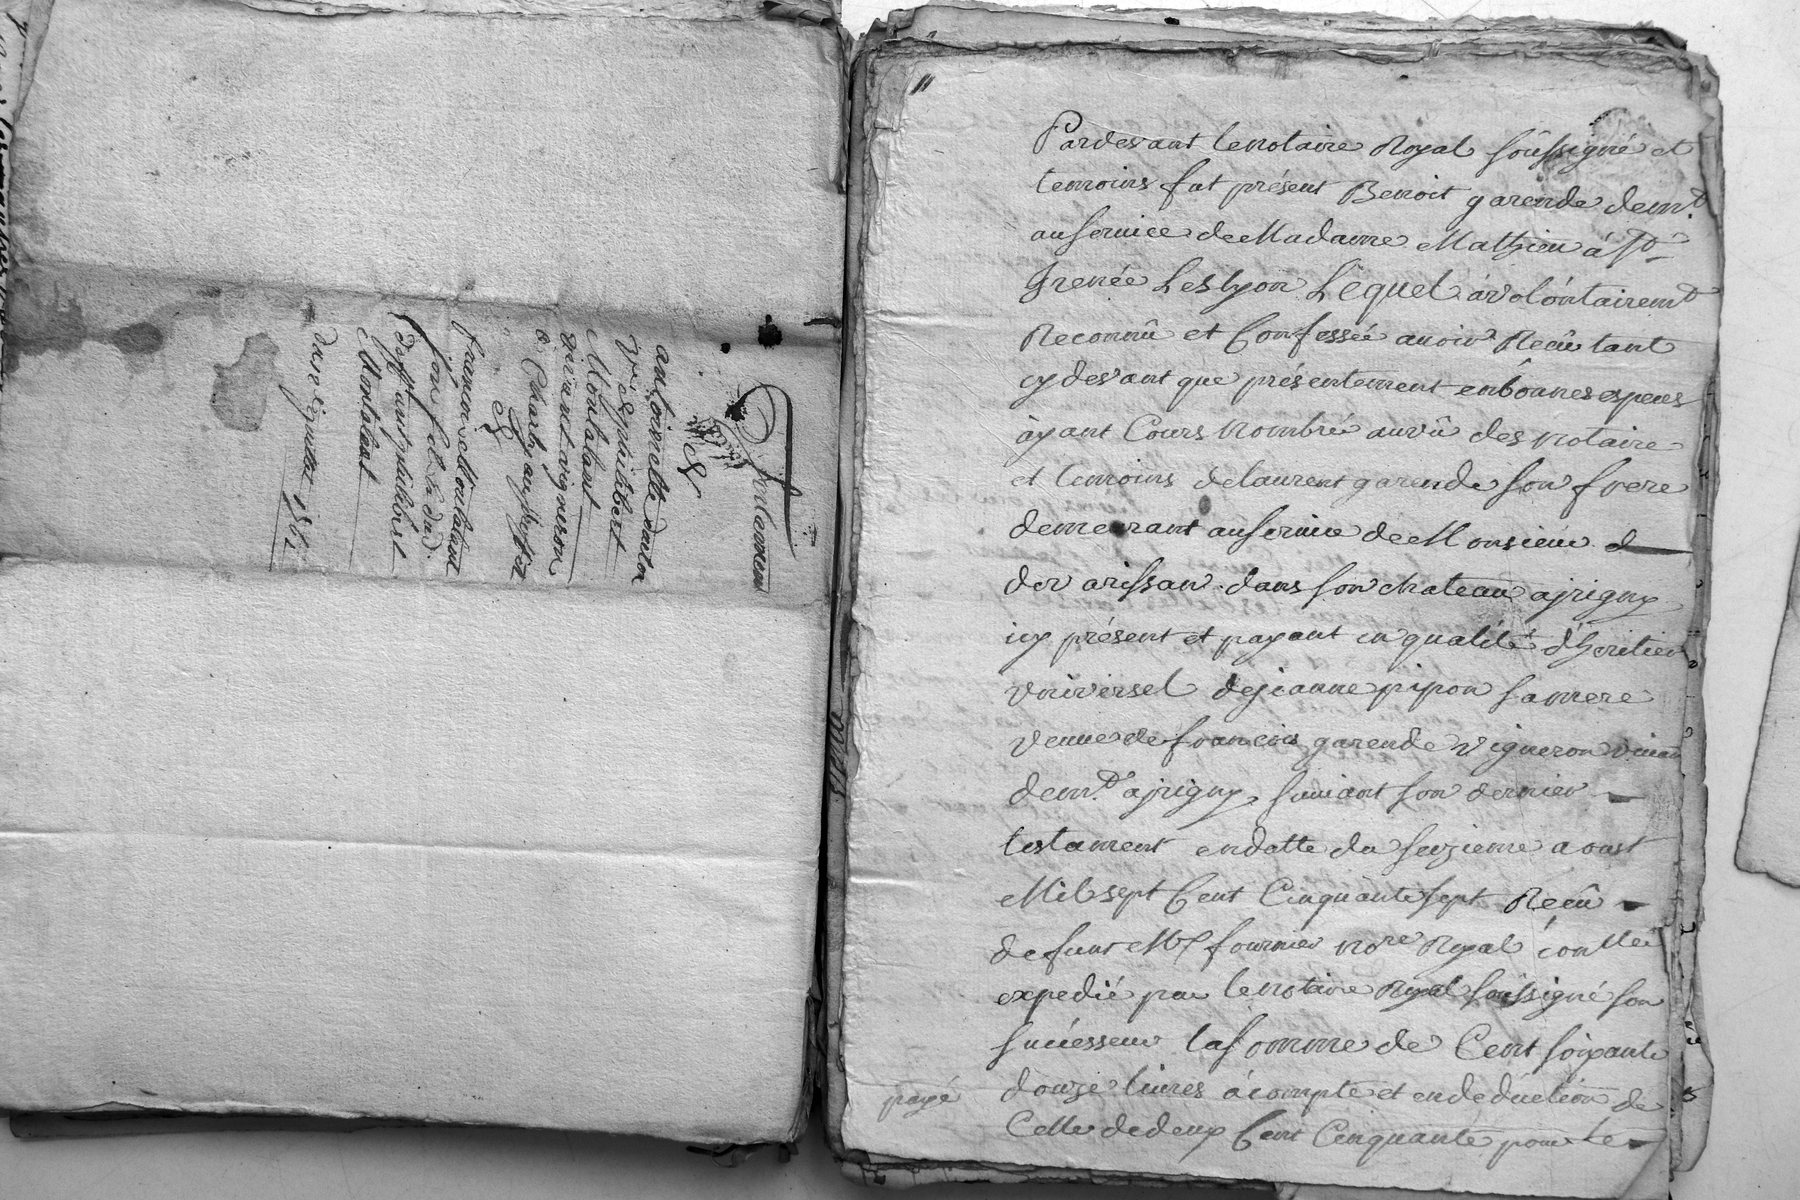 antoinette
Vᵉ Philibert
Montalant
François Montalant
deffunt philibert
Montalant
11
Pardevant le notaire Royal soussigné et
temoins fut présent Benoit garende demt.
au service de Madame Mathieu á St.
Irenée Les lyon Lequel a volontairemt
Reconnû et Confessée avoir Reçû tant
cy devant que présentement en bonnes especes
ayant Cours nombré au vû des notaire
et temoins de laurent garende son frere
demeurant au service de Monsieur d
der arissan dans son chateau a jrigny
icy présent et payant en qualité d'heritier
universel de jeanne pipon sa mere
veuve de francois garende vigneron vivant
demt. a jrigny, suivant son dernier
testament en datte du seizieme aoust
Mil sept Cent Cinquante sept Reçû
defunt Me fournier nore Royal conllé
expedié par le notaire Royal soussigné son
successeur la somme de Cent soixante
payé
douze livres á compte et en deduction de
Celle de deux Cent Cinquante pour le